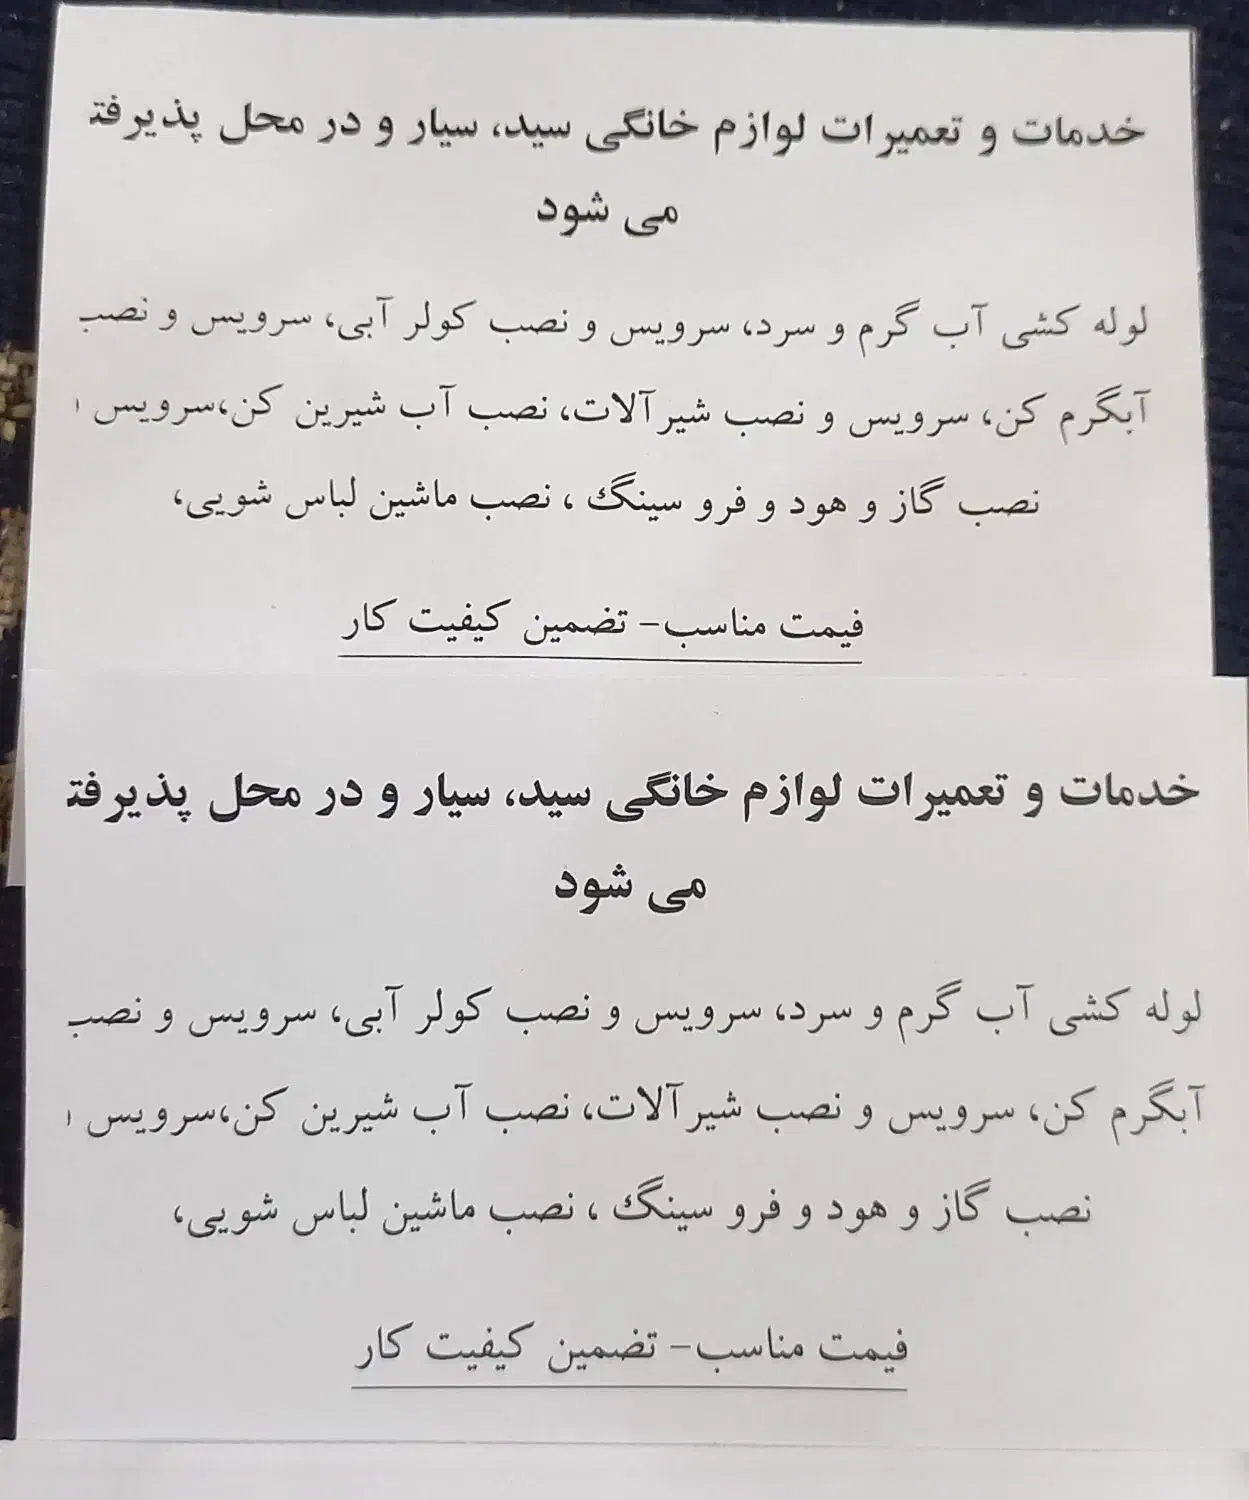 خدمات و تعمیرات لوازم خانگی سید، سیار و در محل پذیرفتـ
می شود
لوله کشی آب گرم و سرد، سرویس و نصب کولر آبی، سرویس و نصب
آبگرم کن، سرویس و نصب شیرآلات، نصب آب شیرین کن،سرویس
نصب گاز و هود و فرو سینگ ، نصب ماشین لباس شویی،
قیمت مناسب- تضمین کیفیت کار
خدمات و تعمیرات لوازم خانگی سید، سیار و در محل پذیرفتـ
می شود
لوله کشی آب گرم و سرد، سرویس و نصب کولر آبی، سرویس و نصب
آبگرم کن، سرویس و نصب شیرآلات، نصب آب شیرین کن،سرویس
نصب گاز و هود و فرو سینگ ، نصب ماشین لباس شویی،
قیمت مناسب- تضمین کیفیت کار